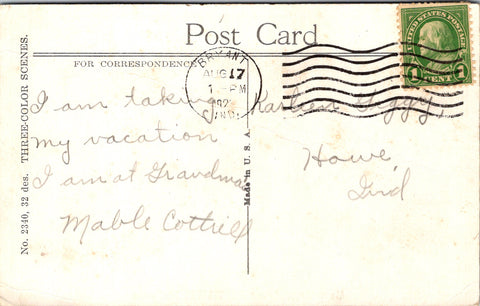 Post Card
FOR CORRESPONDENCE
No. 2340, 32 des. THREE-COLOR SCENES.
Made in U. S. A.
BRYANT
AUG 17
PM
192
IND.
UNITED STATES POSTAGE
1 CENT 1
I am taking
my vacation
I am at Grandmas
Mable Cottrell
Howe,
Ind